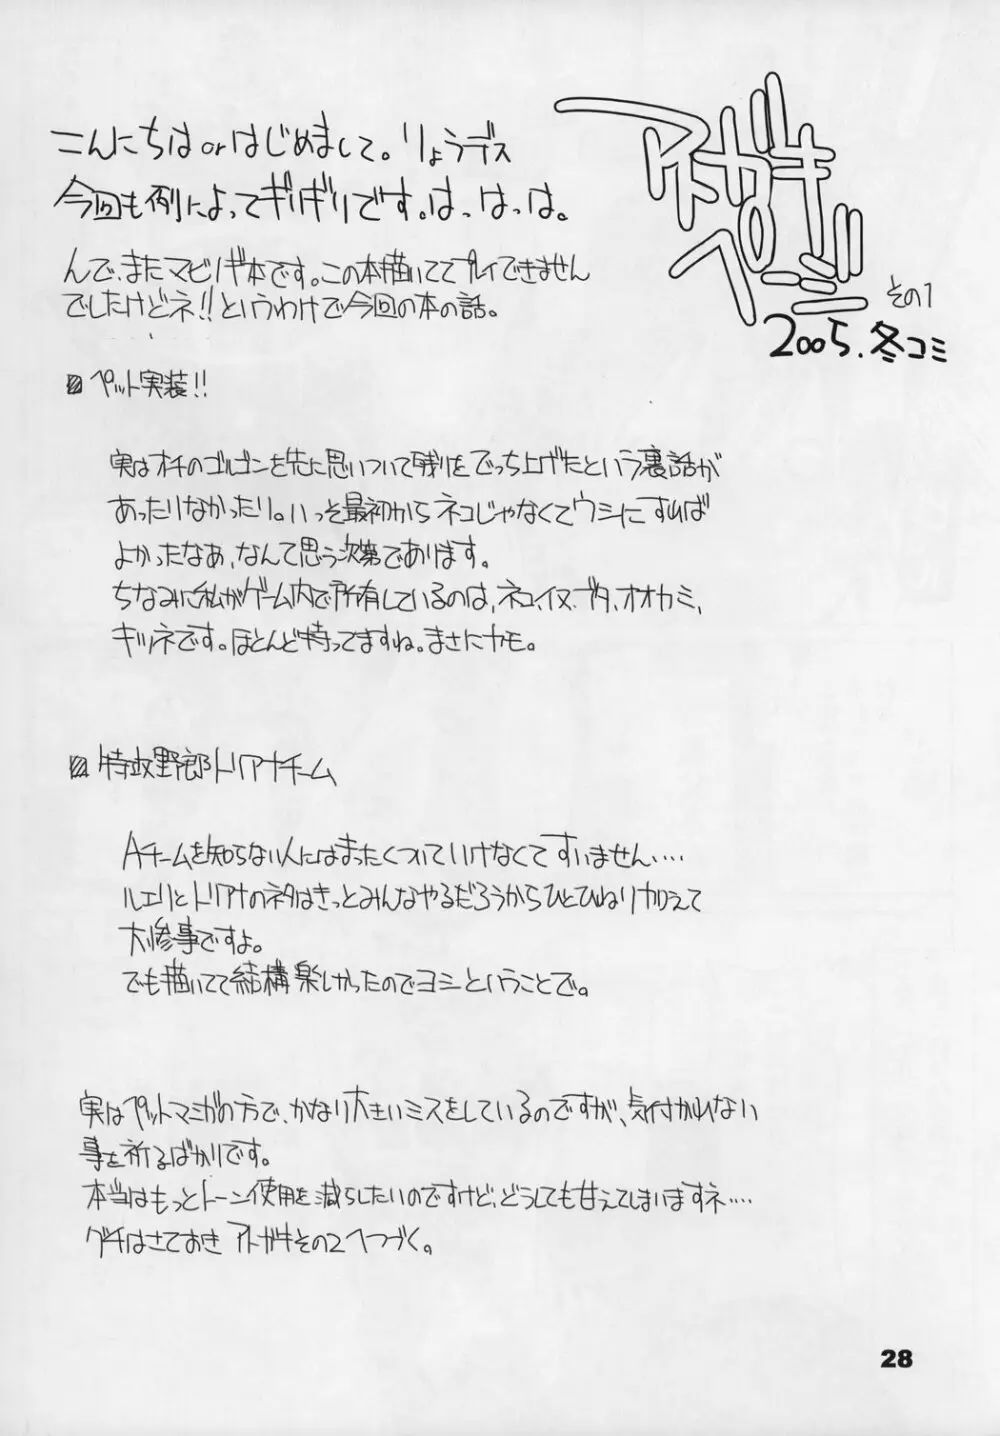 アトガキ
ページ
その1
2005.冬コミ
こんにちはorはじめまして。りょうデス
今回も例によってギリギリです。はっはっは。
んで、またマビノギ本です。この本描いててプレイできません
でしたけどネ!!というわけで今回の本の話。
ペット実装!!
実はオチのゴルゴンを先に思いついて残りをでっち上げたという裏話が
あったりなかったり。いっそ最初からネコじゃなくてウシにすれば
よかったなあ、なんて思う次第であります。
ちなみに私がゲーム内で所有しているのは、ネコ、イヌ、ブタ、オオカミ、
キツネです。ほとんど持ってますね。まさにカモ。
特攻野郎トリアナチーム
Aチームを知らない人にはまったくついていけなくてすいません‥‥
ルエリとトリアナのネタはきっとみんなやるだろうからひとひねり加えて
大惨事ですよ。
でも描いてて結構楽しかったのでヨシということで。
実はペットマンガの方で、かなり大きいミスをしているのですが、気付かれない
事を祈るばかりです。
本当はもっとトーン使用を減らしたいのですけど、どうしても甘えてしまいますネ‥‥
グチはさておきアトガキその2へつづく。
28